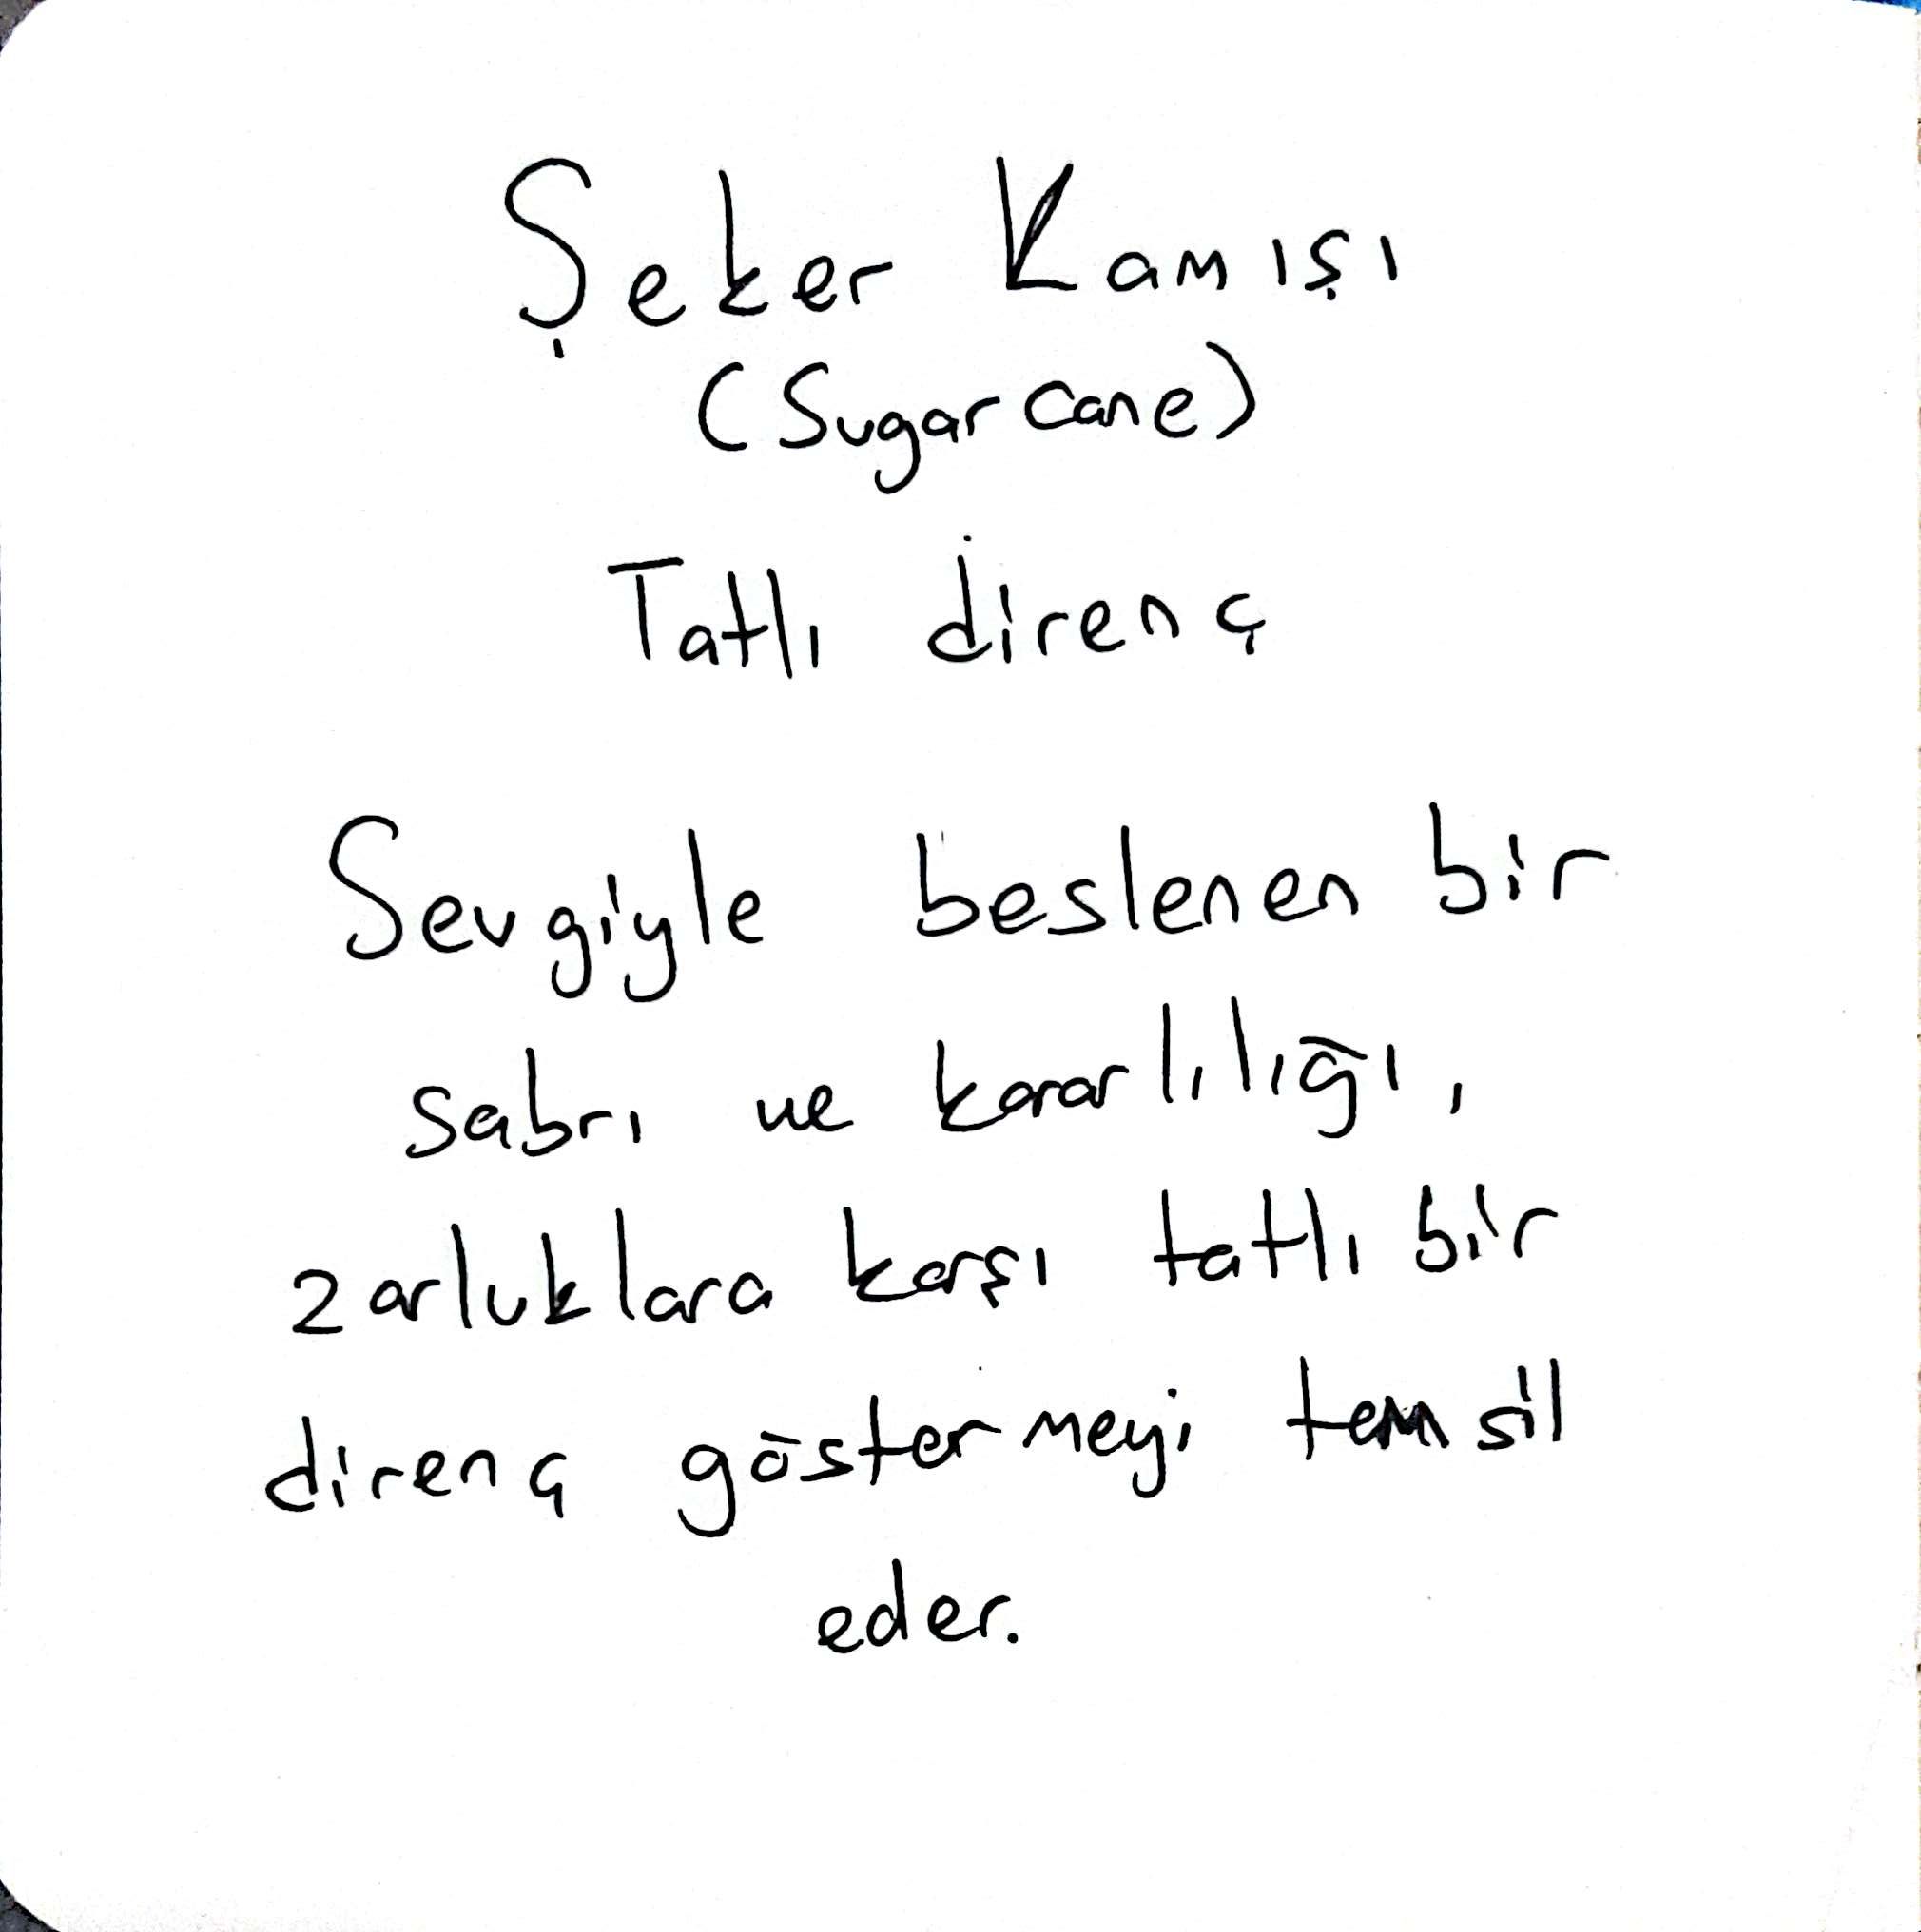 Şeker Kamışı
(Sugar cane)
Tatlı direnç
Sevgiyle beslenen bir
sabrı ve kararlılığı,
zarluklara karşı tatlı bir
direnç göstermeyi temsil
eder.